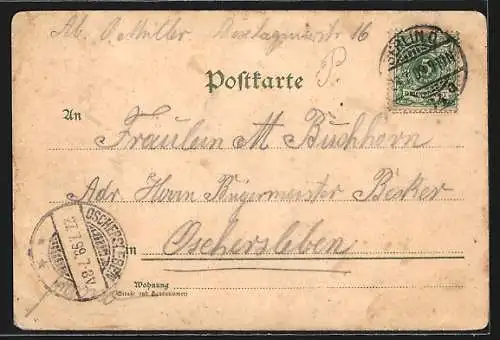 Ab. O. Müller, 16
P.
Postkarte
BERLIN O.
An
Fräulein M Buchhorn
Adr Herrn Bürgermeister Becker
in Oschersleben
OSCHERSLEBEN
27.7.99.7-8V.
(BODE)
Wohnung
(Straße und Hausnummer)